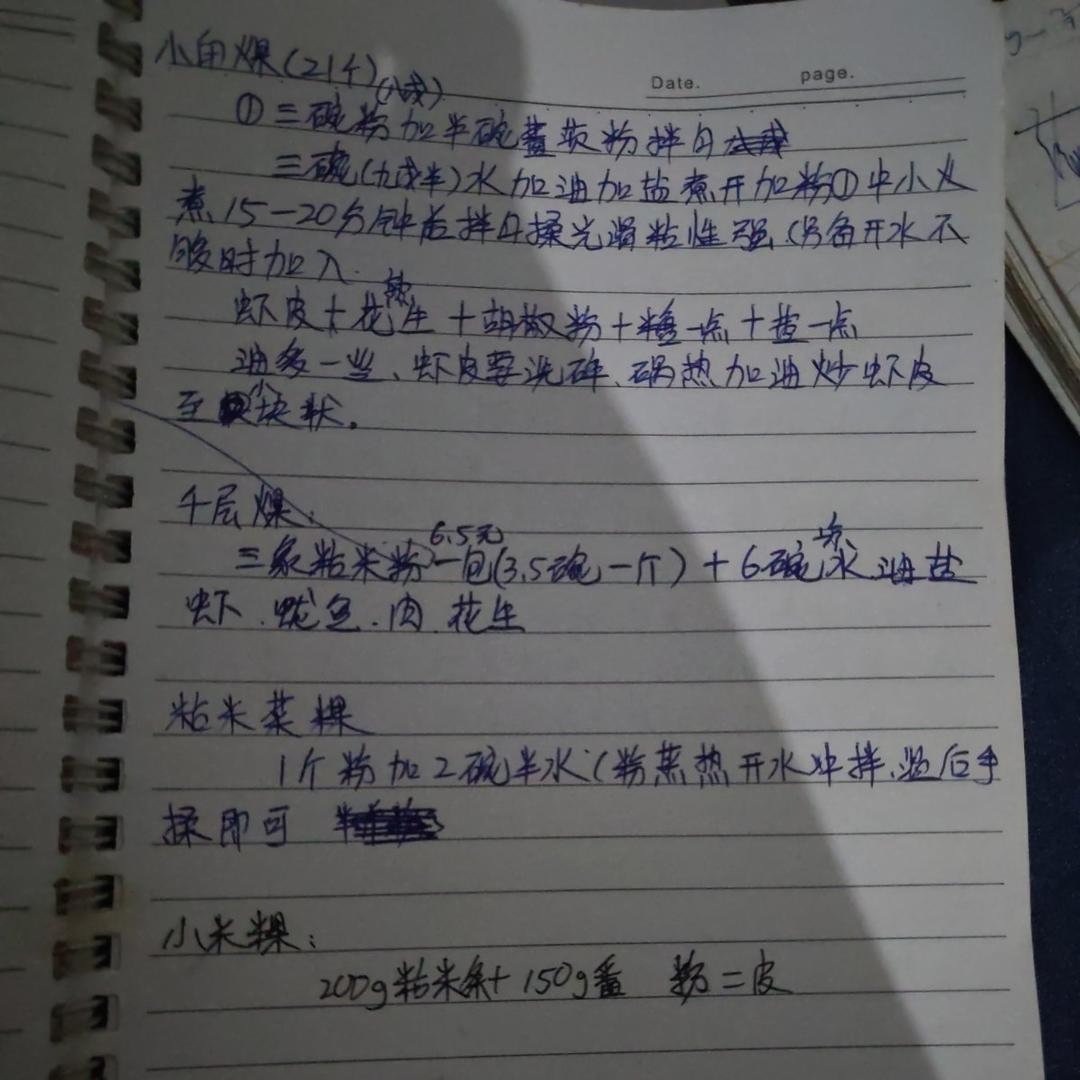 Date. page.
小角粿(21个)
(八成)
①三碗粉加半碗蕃茨粉拌匀
三碗(九成半)水加油加盐煮开加粉①中小火
煮15-20分钟后拌匀揉光滑粘性强(另备开水不
够时加入.
虾皮+花生+胡椒粉+糖一点+盐一点
油多一些、虾皮要洗碎、锅热加油炒虾皮
至小块状。
千层粿:
6.5元
三象粘米粉一包(3.5碗一个)+6碗水 油盐
虾.鱿鱼.肉.花生
粘米菜粿
1个粉加2碗半水(粉蒸热开水冲拌,后手
揉即可
小米粿:
200g粘米条+150g番 粉=皮